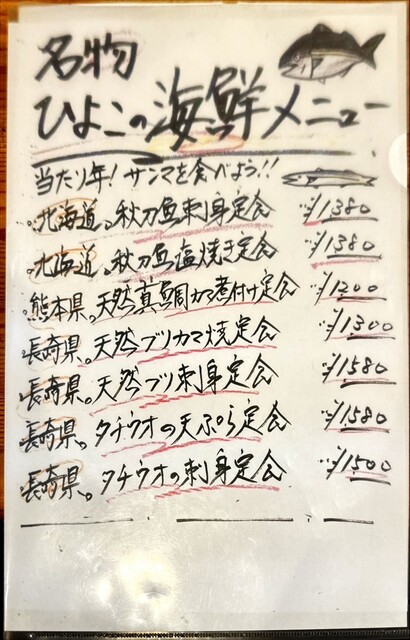 名物
ひよこの海鮮メニュー
当たり年！サンマを食べよう!!
北海道。秋刀魚刺身定食 ¥1380
北海道。秋刀魚塩焼き定食 ¥1380
熊本県。天然真鯛カマ煮付け定食 ¥1200
長崎県。天然ブリカマ焼定食 ¥1300
長崎県。天然ブリ刺身定食 ¥1580
長崎県。タチウオの天ぷら定食 ¥1580
長崎県。タチウオの刺身定食 ¥1500